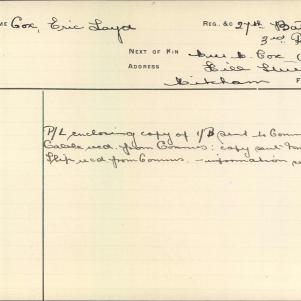 ME Cox, Eric Loyd REG. &C 27th Ba
3rd
NEXT OF KIN Mrs Cox
ADDRESS Hill
Mitcham F
P/L enclosing copy of 1/B sent to Com
Cable recd. from Commrs: copy sent
Slip recd from Commrs. - information